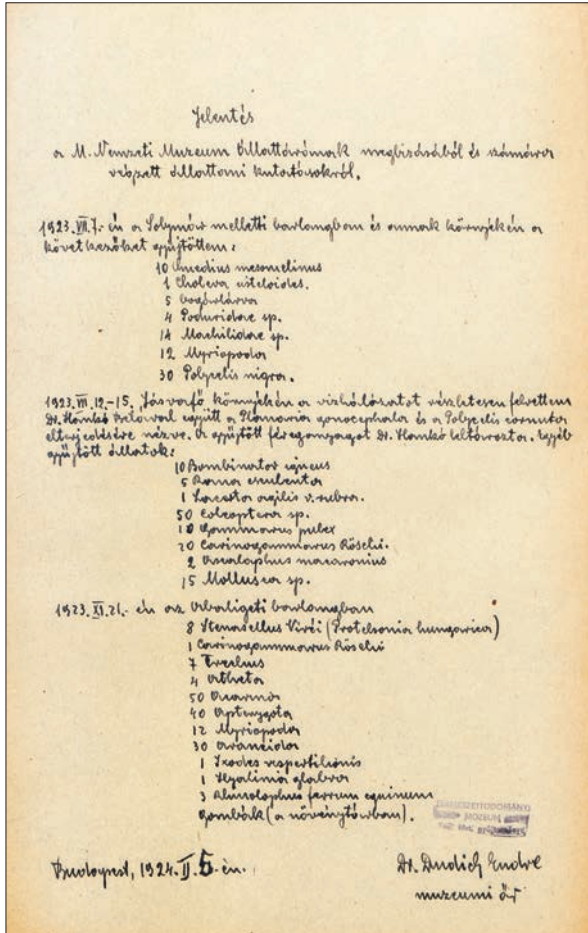 Jelentés
a M. Nemzeti Muzeum Állattárának megbizásából és számára
végzett állattani kutatásokról.
1923.VII.7.-én a Solymár melletti barlangban és annak környékén a
következőket gyűjtöttem:
10 Quedius mesomelinus
1 Choleva
5 bogárlárva
4 Poduridae sp.
14 Machilidae sp.
12 Myriopoda
30 Polycelis nigra.
1923. 12.-15. Jósvafő környékén a vizhálózatot részletesen felvettem
Dr. Hankó Bélával együtt a Planaria gonocephala és a Polycelis cornuta
elterjedésére nézve. A gyűjtött féreganyagot Dr. Hankó leltározta. Egyéb
gyűjtött állatok:
10 Bombinator igneus
5 Rana esculenta
1 Lacerta agilis v. rubra.
50 Coleoptera sp.
10 Gammarus pulex
20 Carinogammarus Röselii.
2 Ascalaphus macaronius
15 Mollusca sp.
1923.XI.21.-én az Abaligeti barlangban
8 Stenasellus Viréi (Protelsonia hungarica)
1 Carinogammarus Röselii
7
4 Atheta
50 Acarina
40 Apterygota
12 Myriopoda
30 Araneida
1 Ixodes vespertilionis
1 Hyalinia glabra
3 Rhinolophus ferrum equinum
gombák (a növénytárban).
TERMÉSZETTUDOMÁNYI
MÚZEUM
Budapest, 1924.II.5-én.
Dr. Dudich Endre
muzeumi őr